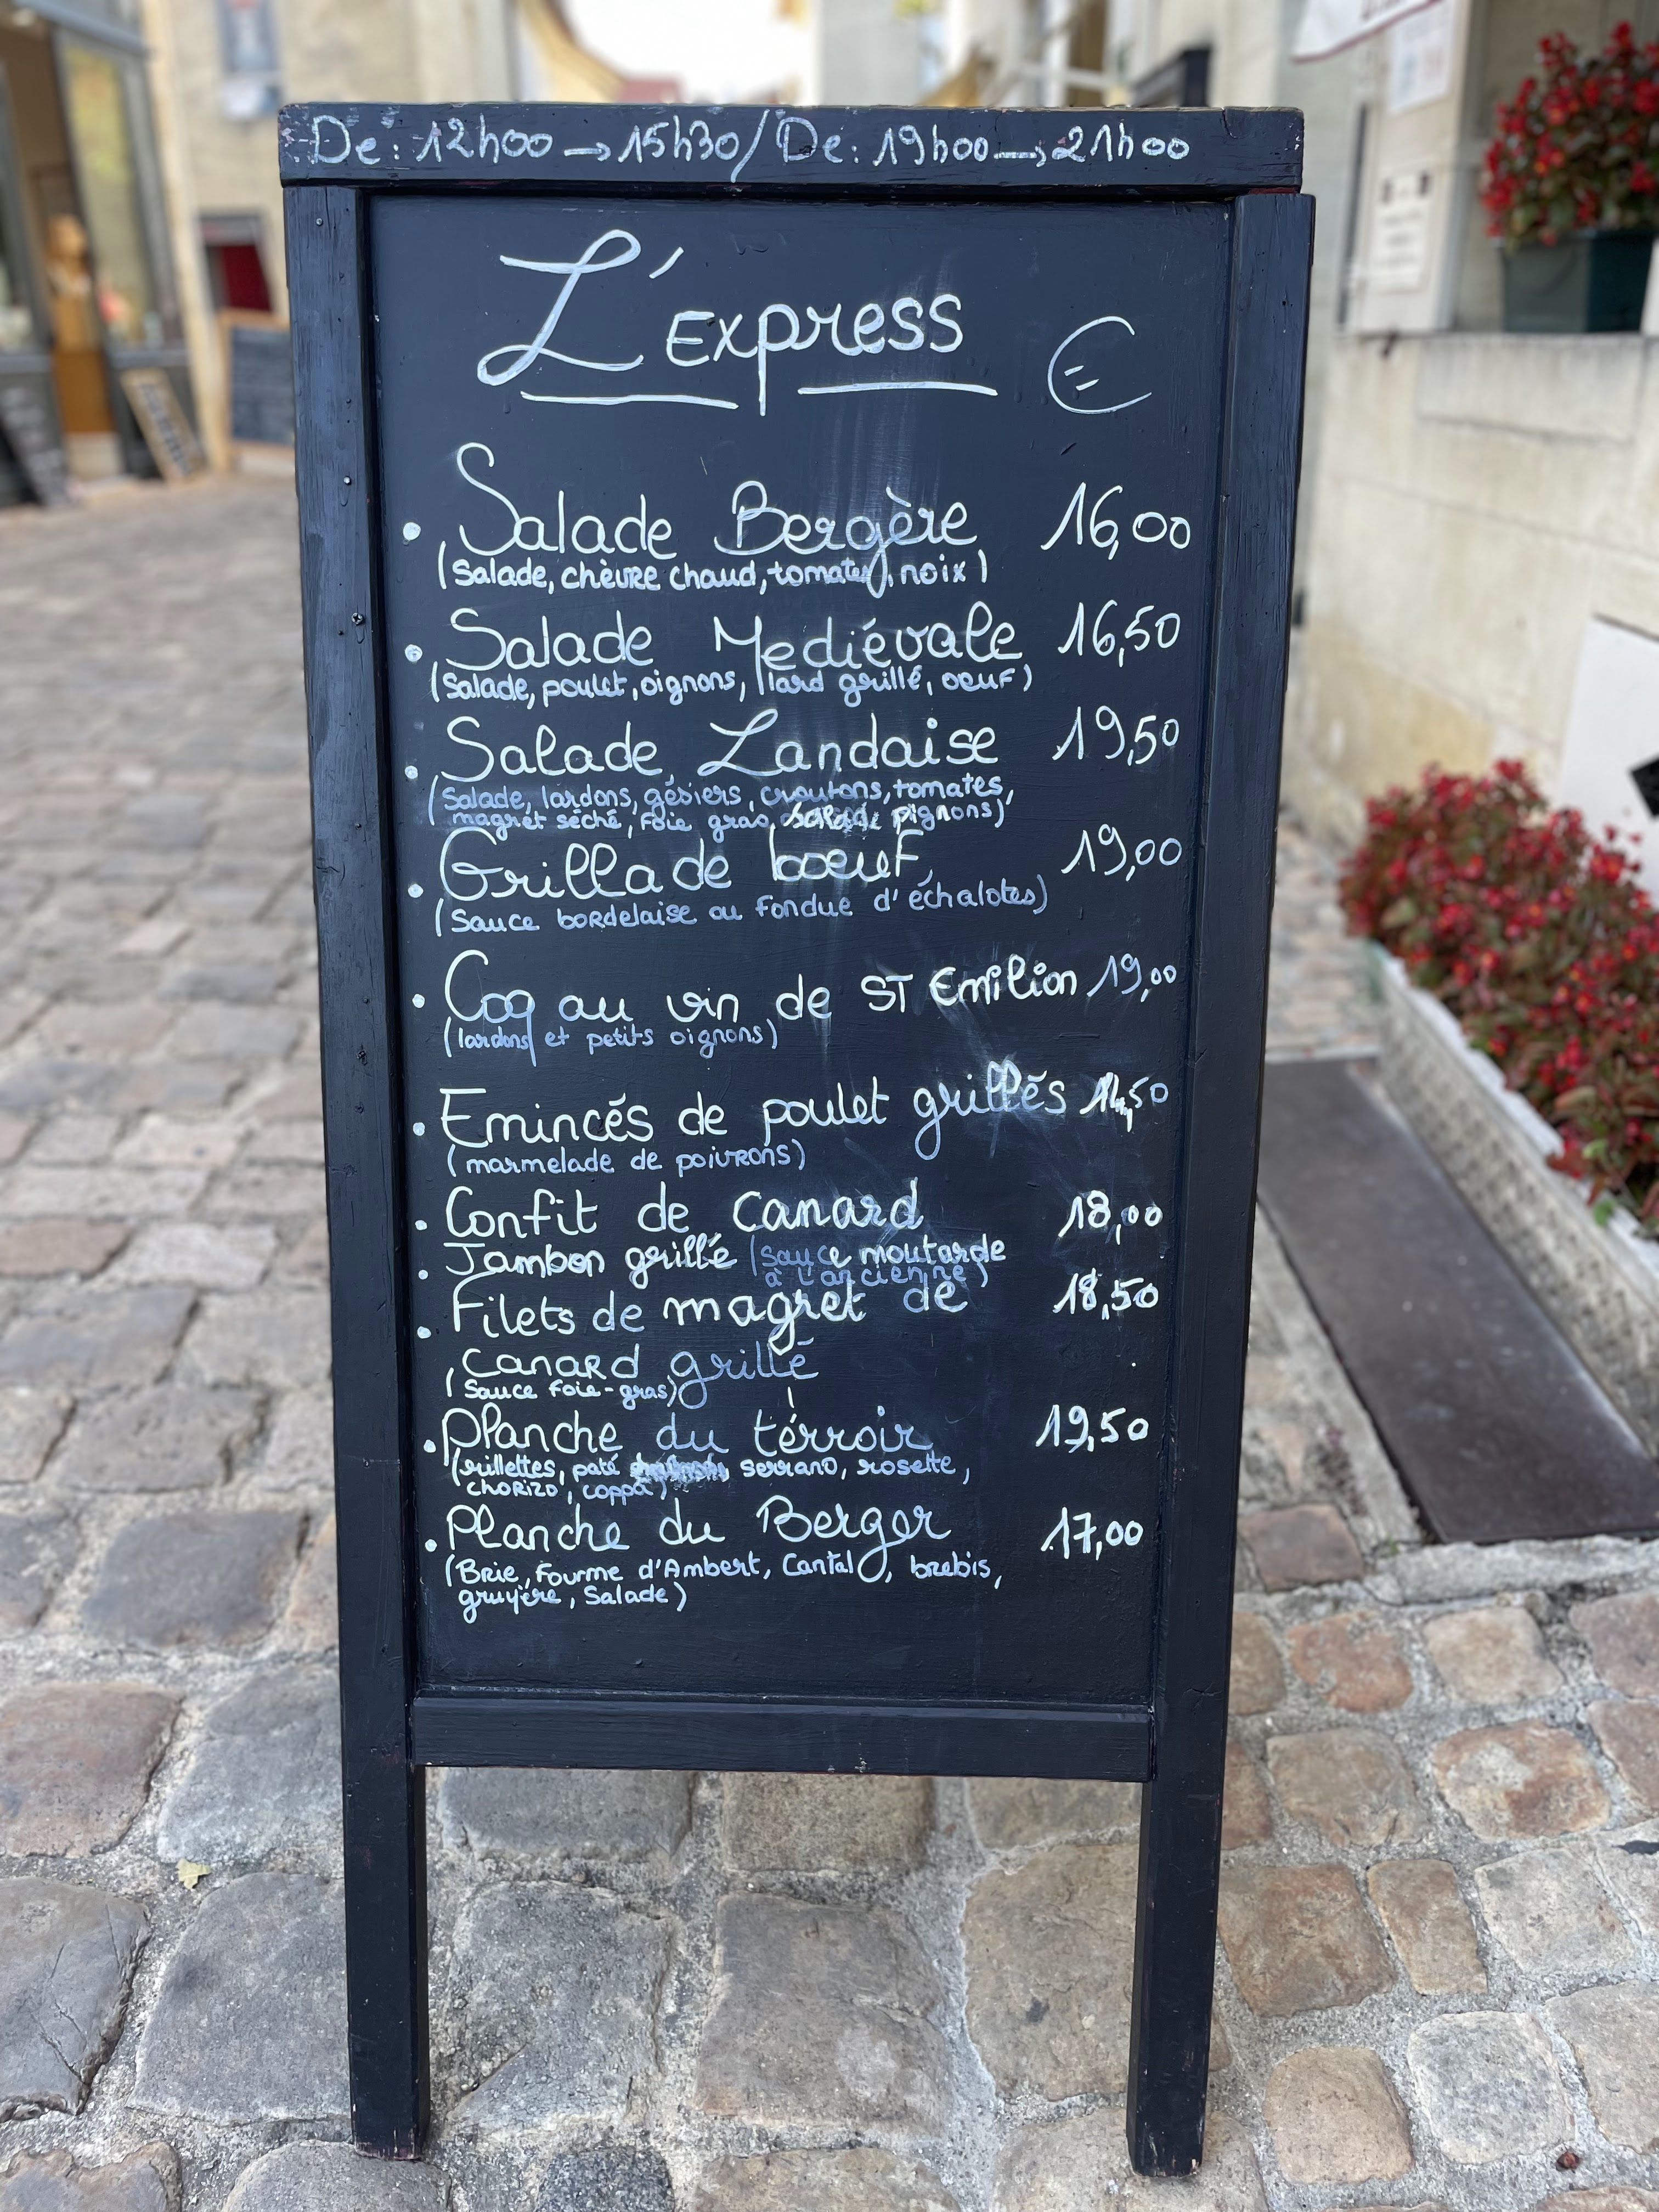 De: 12h00 → 15h30 / De: 19h00 → 21h00
L'Express €
• Salade Bergère 16,00
(Salade, chèvre chaud, tomates, noix)
• Salade Mediévale 16,50
(Salade, poulet, oignons, lard grillé, oeuf)
• Salade Landaise 19,50
(Salade, lardons, gésiers, croutons, tomates,
magret séché, foie gras, pignons)
• Grillade boeuf 19,00
(Sauce bordelaise ou fondue d'échalotes)
• Coq au vin de ST Emilion 19,00
(lardons et petits oignons)
• Emincés de poulet grillés 14,50
(marmelade de poivrons)
• Confit de canard 18,00
• Jambon grillé (sauce moutarde
à l'ancienne)
• Filets de magret de 18,50
canard grillé
(Sauce Foie-gras)
• Planche du térroir 19,50
(rillettes, paté, serrano, rosette,
chorizo, coppa)
• Planche du Berger 17,00
(Brie, Fourme d'Ambert, Cantal, brebis,
gruyère, Salade)